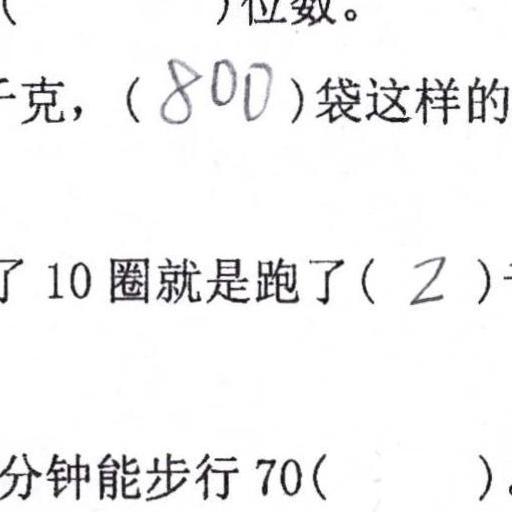 ( )位数。
千克，( 800 )袋这样的
了 10 圈就是跑了( 2 )千
分钟能步行 70( )。